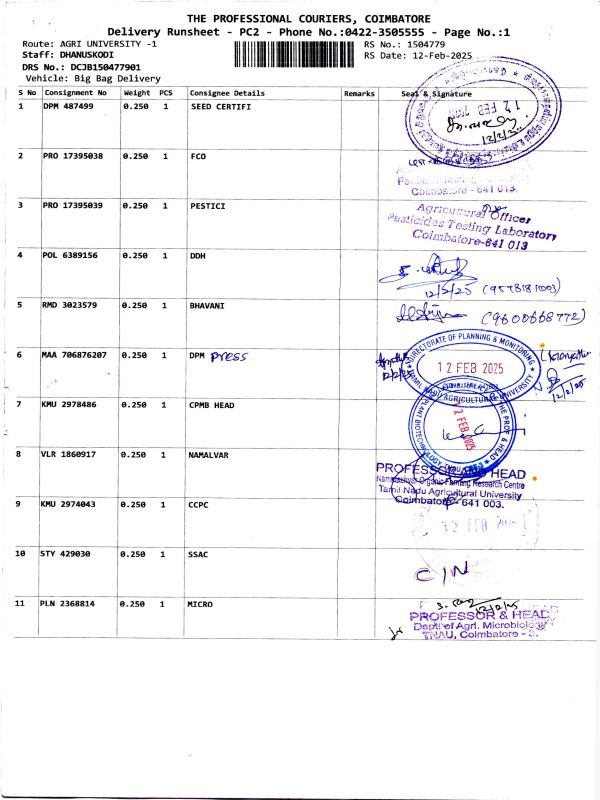 THE PROFESSIONAL COURIERS, COIMBATORE
Delivery Runsheet - PC2 - Phone No.:0422-3505555 - Page No.:1
Route: AGRI UNIVERSITY -1 RS No.: 1504779
Staff: DHANUSKODI RS Date: 12-Feb-2025
DRS No.: DCJB150477901
Vehicle: Big Bag Delivery
S No Consignment No Weight PCS Consignee Details Remarks Seal & Signature
1 DPM 487499 0.250 1 SEED CERTIFI
12 FEB 2025
2 PRO 17395038 0.250 1 FCO
Coimbatore - 641 013.
3 PRO 17395039 0.250 1 PESTICI
Agricultural Officer
Pesticides Testing Laboratory
Coimbatore-641 013
4 POL 6389156 0.250 1 DDH
12/2/25
5 RMD 3023579 0.250 1 BHAVANI
(9600668772)
6 MAA 706876207 0.250 1 DPM PRESS
DIRECTORATE OF PLANNING & MONITORING
12 FEB 2025
TAMIL NADU AGRICULTURAL UNIVERSITY
12/2/25
7 KMU 2978486 0.250 1 CPMB HEAD
THE PROF & HEAD
12 FEB 2025
PLANT BIOTECHNOLOGY
8 VLR 1860917 0.250 1 NAMALVAR
PROFESSOR AND HEAD
Nammazhvar Organic Farming Research Centre
Tamil Nadu Agricultural University
Coimbatore - 641 003.
9 KMU 2974043 0.250 1 CCPC
12 FEB 2025
10 STY 429030 0.250 1 SSAC
11 PLN 2368814 0.250 1 MICRO
12/2/25
PROFESSOR & HEAD
Dept. of Agri. Microbiology
TNAU, Coimbatore - 3.